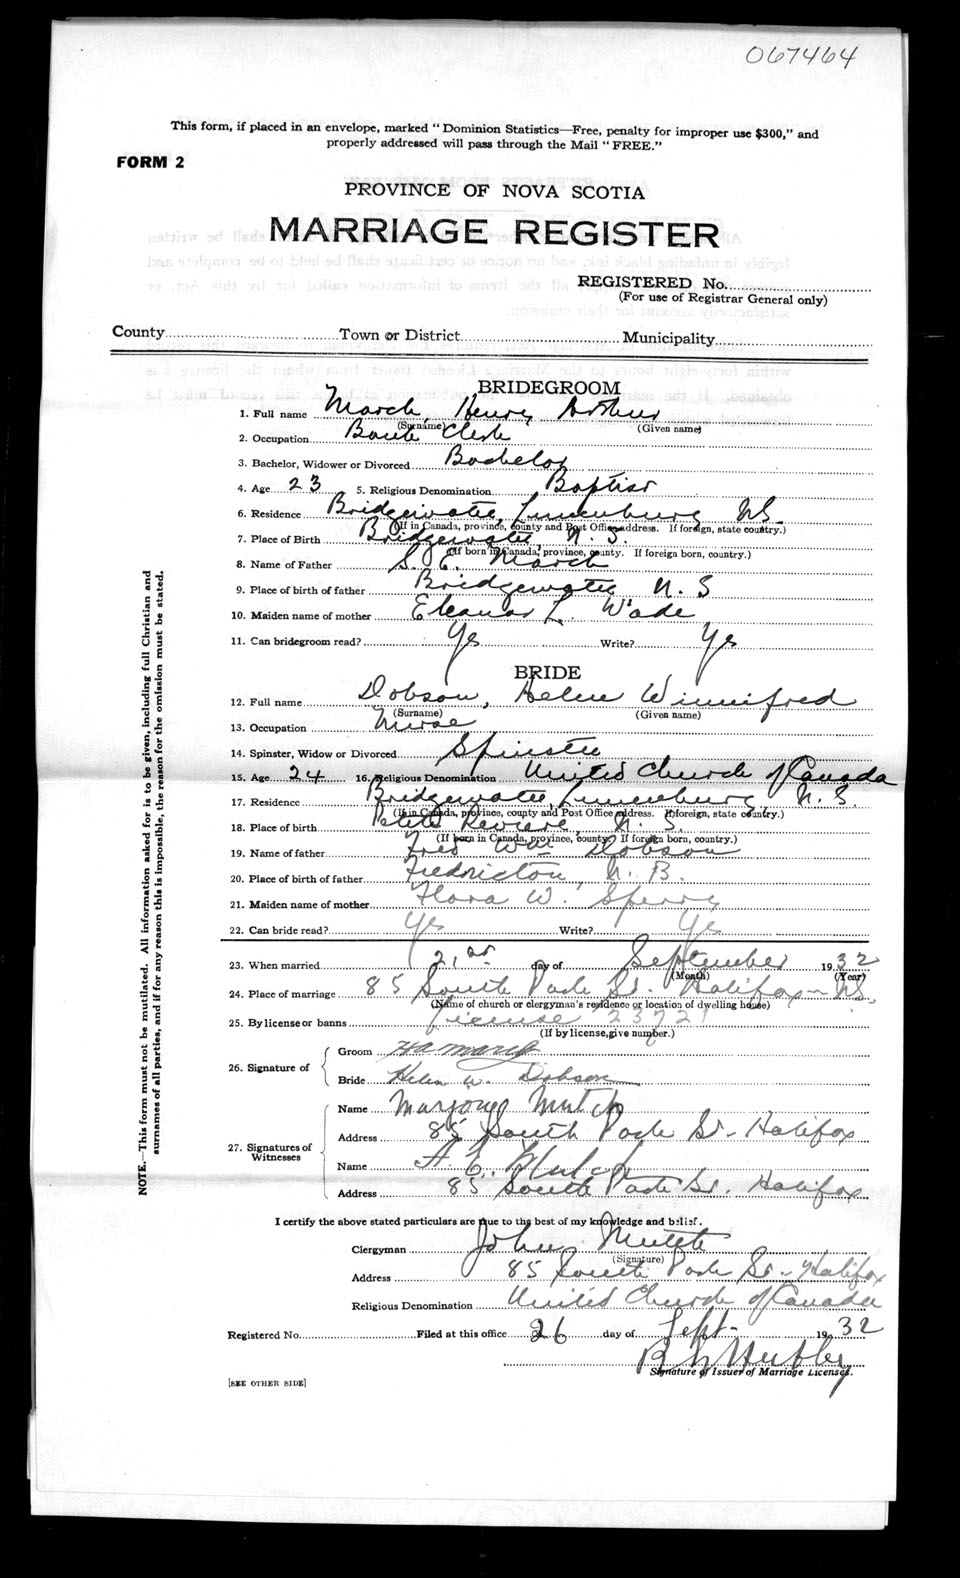 067464
This form, if placed in an envelope, marked "Dominion Statistics—Free, penalty for improper use $300," and
properly addressed will pass through the Mail "FREE."
FORM 2
PROVINCE OF NOVA SCOTIA
MARRIAGE REGISTER
REGISTERED No.
(For use of Registrar General only)
County Town or District Municipality
BRIDEGROOM
1. Full name March, Henry Arthur
(Surname) (Given name)
2. Occupation Bank Clerk
3. Bachelor, Widower or Divorced Bachelor
4. Age 23 5. Religious Denomination Baptist
6. Residence Bridgewater, Lunenburg N.S.
(If in Canada, province, county and Post Office address. If foreign, state country.)
7. Place of Birth Bridgewater N.S.
(If born in Canada, province, county. If foreign born, country.)
8. Name of Father S. E. March
9. Place of birth of father Bridgewater N.S
10. Maiden name of mother Eleanor L. Wade
11. Can bridegroom read? Yes Write? Yes
BRIDE
12. Full name Dobson, Helen Winnifred
(Surname) (Given name)
13. Occupation Nurse
14. Spinster, Widow or Divorced Spinster
15. Age 24 16. Religious Denomination United Church of Canada
17. Residence Bridgewater, Lunenburg, N.S.
(If in Canada, province, county and Post Office address. If foreign, state country.)
18. Place of birth Petite Reviere, N.S.
(If born in Canada, province, county? If foreign born, country.)
19. Name of father Fred Wm Dobson
20. Place of birth of father Fredricton, N.B.
21. Maiden name of mother Flora W. Sperry
22. Can bride read? Yes Write? Yes
23. When married 21st day of September 1932
(Month) (Year)
24. Place of marriage 85 South Park St. Halifax - N.S.
(Name of church or clergyman's residence or location of dwelling house)
25. By license or banns License 23721
(If by license, give number.)
26. Signature of
Groom H A March
Bride Helen W. Dobson
27. Signatures of Witnesses
Name Marjory Mutch
Address 85 South Park St. Halifax
Name A. E. Mutch
Address 85 South Park St. Halifax
I certify the above stated particulars are true to the best of my knowledge and belief.
Clergyman John Mutch
(Signature)
Address 85 South Park St - Halifax
Religious Denomination United Church of Canada
Registered No. Filed at this office 26 day of Sept - 1932
Signature of Issuer of Marriage Licenses.
[SEE OTHER SIDE]
NOTE.—This form must not be mutilated. All information asked for is to be given, including full Christian and
surnames of all parties, and if for any reason this is impossible, the reason for the omission must be stated.